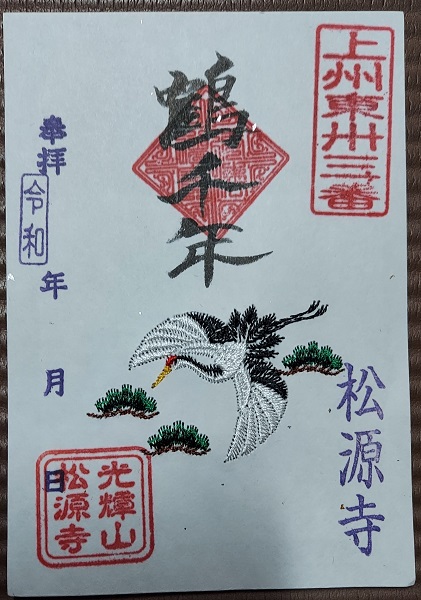 上州東卅三番
鶴千年
奉拝
令和
年
月
日
松源寺
光輝山
松源寺